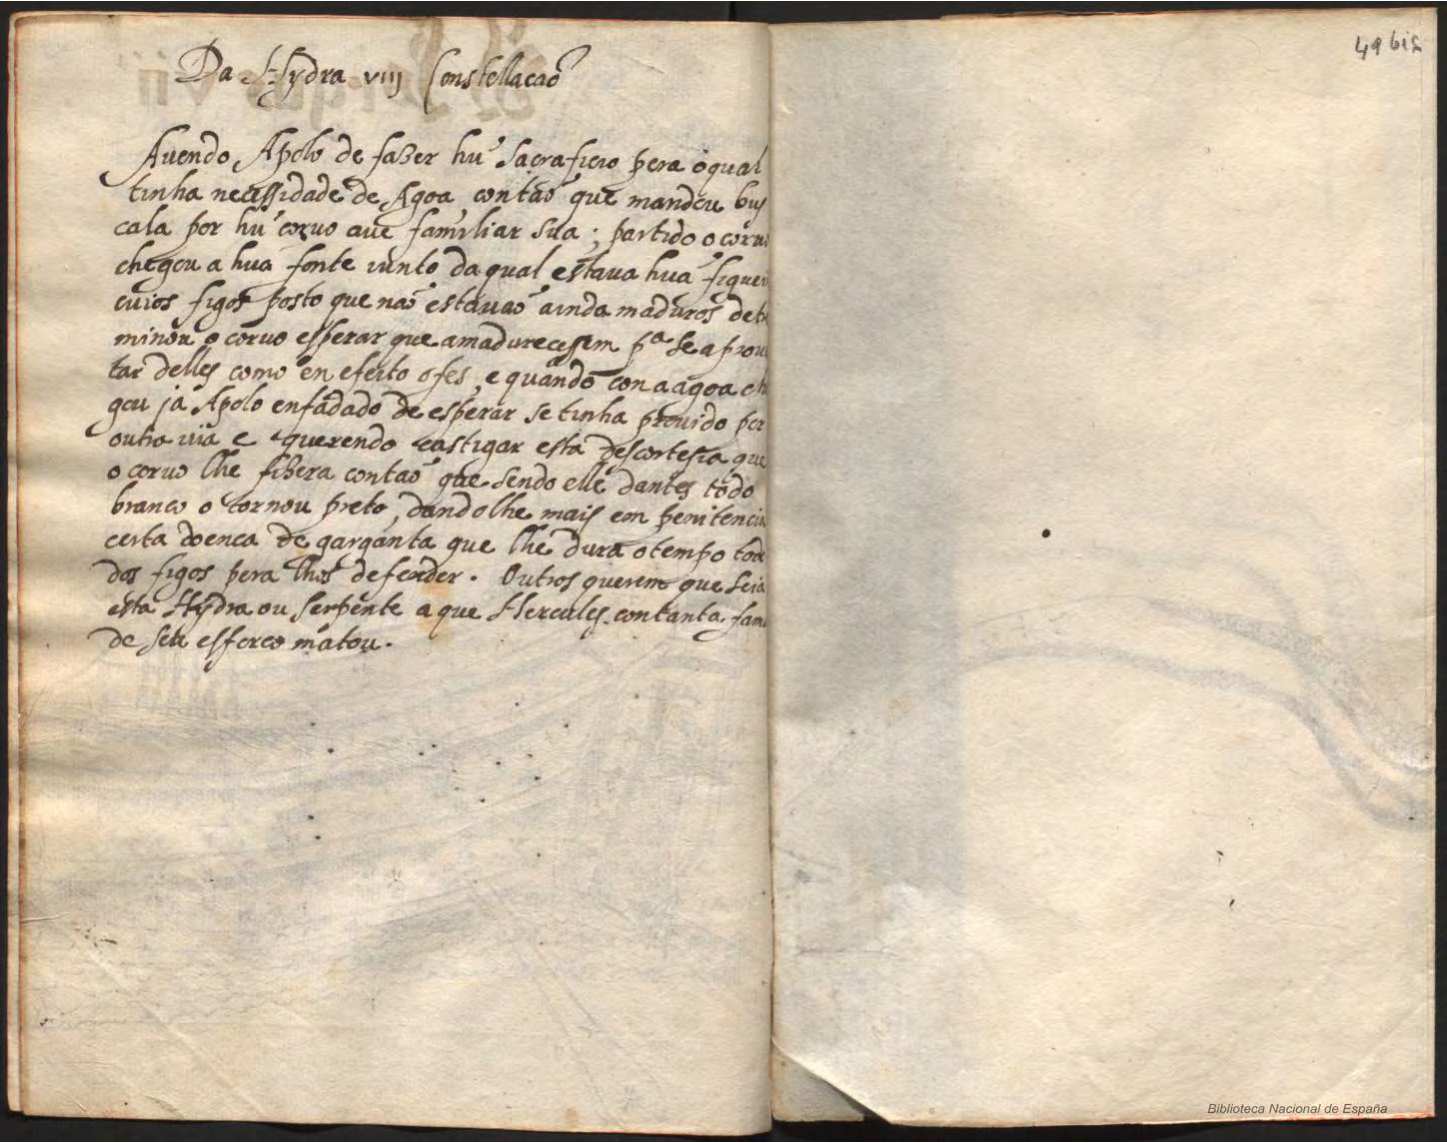 49 bis
Da Hydra viij Constellacaõ
Auendo Apolo de faZer hu˜ sacraficio pera o qual
tinha necessidade de Agoa contaõ que mandou bus
cala por hu˜ coruo aue familiar sua ; partido o coruo
chegou a hua˜ fonte iunto da qual estaua hua˜
cuios figos posto que naõ estauaõ ainda maduros
minou o coruo esperar que amadurecessem pª se
tar delles como en efeito o fes, e quando con a agoa
gou já Apolo enfadado de esperar se tinha prouido por
outra uia e querendo castigar esta descortesia que
o coruo lhe fiZera contaõ que sendo elle dantes todo
branco o tornou preto, dandolhe mais em penitencia
certa doenca de garganta que lhe dura o tempo
dos figos pera lhos defender. Outros querem que seia
esta Hydra ou serpente a que Hercules con tanta
de seu esforco matou.
Biblioteca Nacional de España